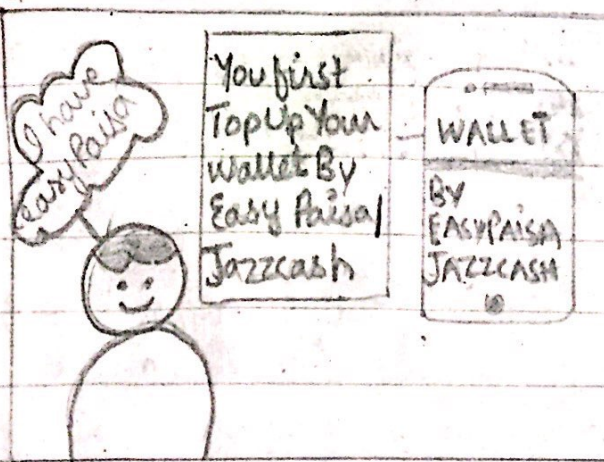 I have
easy Paisa
You first
Top Up Your
Wallet By
Easy Paisa/
Jazzcash
WALLET
BY
EASYPAISA
JAZZCASH